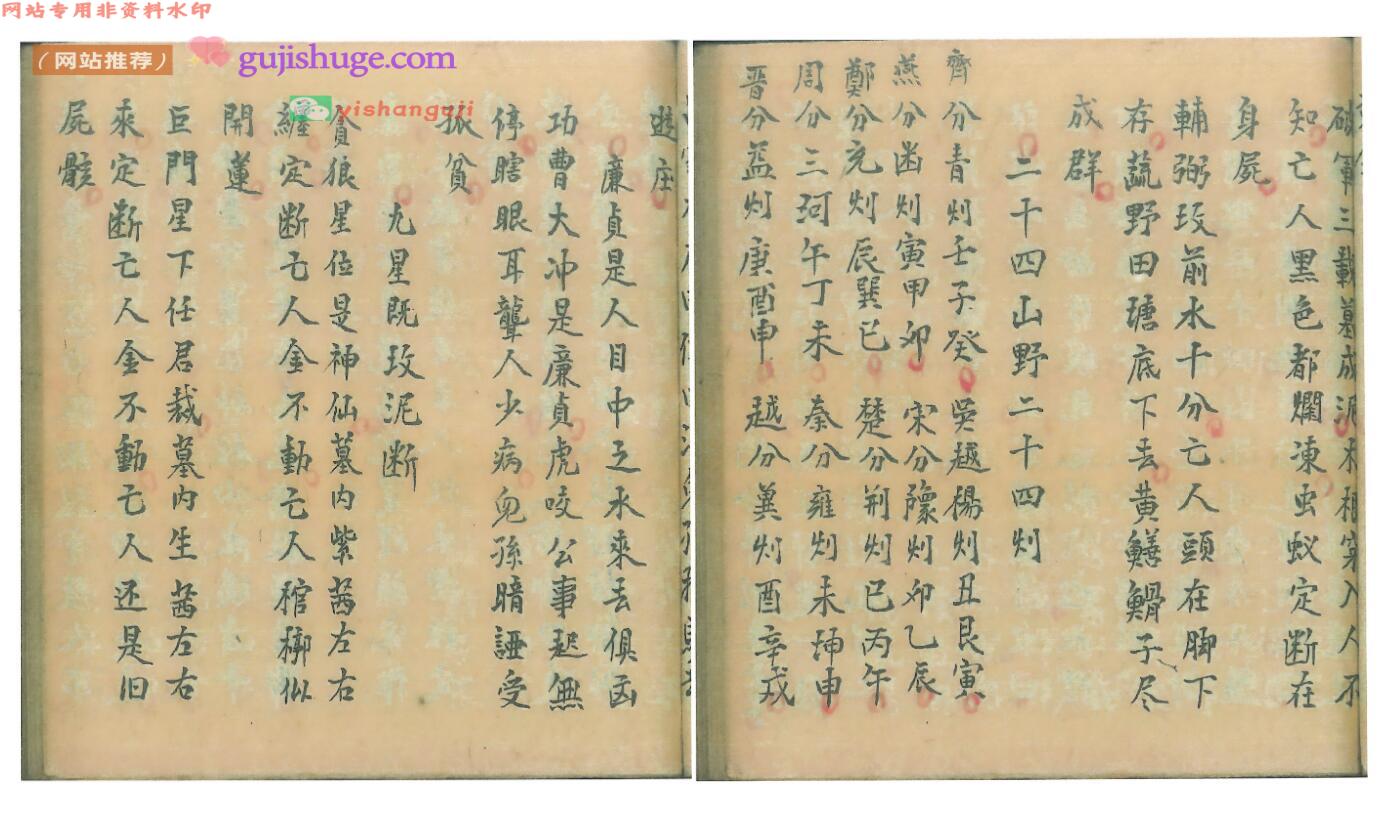 网站专用非资料水印
（网站推荐）
gujishuge.com
yishanguji
破軍三載墓成泥木根穿入人不
知亡人黑色都爛凍虫蚁定断在
身屍
輔弼玫前水十分亡人頭在脚下
存蔬野田塘底下去黄鳝鰼子尽
成群
二十四山野二十四刈
齊分青刈壬子癸吳越楊刈丑艮寅
燕分凾刈寅甲夘宋分豫刈夘乙辰
鄭分充刈辰巽巳楚分荆刈巳丙午
周分三河午丁未秦分雍刈未坤申
晋分益刈庚酉申越分冀刈酉辛戌
遊座
廉貞是人目中乏水乘去俱凾
功曹大冲是廉貞虎咬公事起無
停瞎眼耳聾人少病皃孫暗誣受
孤貧
九星既玫泥断
貪狼星位是神仙墓内紫茜左右
纏定断亡人金不動亡人棺槨似
開蓮
巨門星下任君裁墓内生茜左右
乘定断亡人金不動亡人还是旧
屍骸